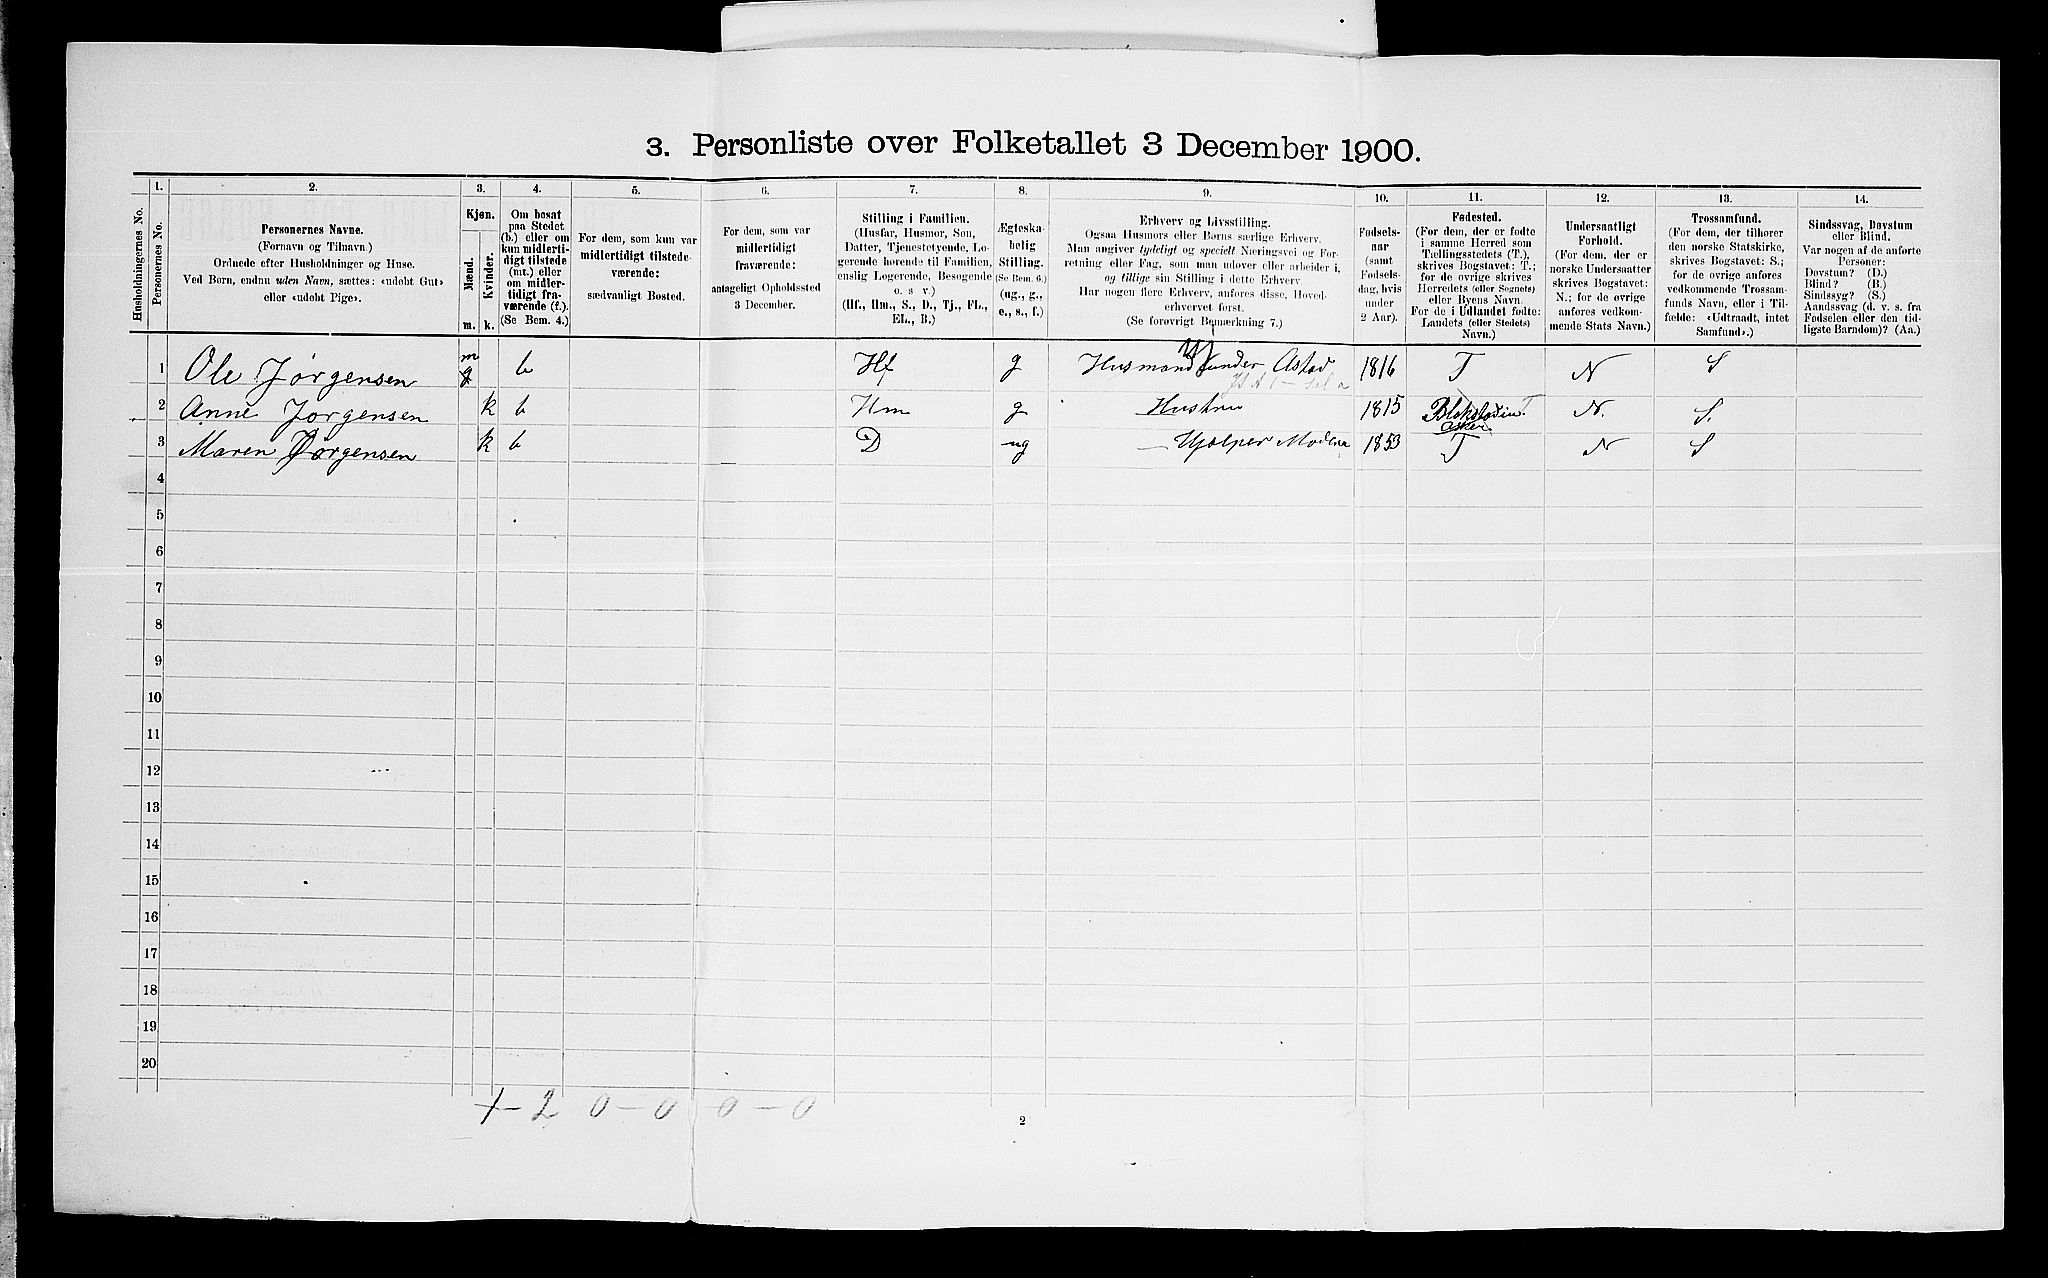 3. Personliste over Folketallet 3 December 1900.
1. 2. 3. 4. 5. 6. 7. 8. 9. 10. 11. 12. 13. 14.
Husholdningernes No.
Personernes No.
Personernes Navne.
(Fornavn og Tilnavn.)
Ordnede efter Husholdninger og Huse.
Ved Børn, endnu uden Navn, sættes: «udøbt Gut»
eller «udøbt Pige».
Kjøn.
Mænd.
Kvinder.
m. k.
Om bosat
paa Stedet
(b.) eller om
kun midlerti-
digt tilstede
(mt.) eller
om midler-
tidigt fra-
værende (f.).
(Se Bem. 4.)
For dem, som kun var
midlertidigt tilstede-
værende:
sædvanligt Bosted.
For dem, som var
midlertidigt
fraværende:
antageligt Opholdssted
3 December.
Stilling i Familien.
(Husfar, Husmor, Søn,
Datter, Tjenestetyende, Lo-
gerende hørende til Familien,
enslig Logerende, Besøgende
o. s. v.)
(Hf., Hm., S., D., Tj., FL.,
EL., B.)
Ægteska-
belig
Stilling.
(Se Bem. 6.)
(ug., g.,
e., s., f.)
Erhverv og Livsstilling.
Ogsaa Husmors eller Børns særlige Erhverv.
Man angiver tydeligt og specielt Næringsvei og For-
retning eller Fag, som man udøver eller arbeider i,
og tillige sin Stilling i dette Erhverv.
Har nogen flere Erhverv, anføres disse, Hoved-
erhvervet først.
(Se forøvrigt Bemærkning 7.)
Fødsels-
aar
(samt
Fødsels-
dag, hvis
under
2 Aar).
Fødested.
(For dem, der er fødte
i samme Herred som
Tællingsstedets (T.),
skrives Bogstavet: T.;
for de øvrige skrives
Herredets (eller Sognets)
eller Byens Navn.
For de i Udlandet fødte:
Landets (eller Stedets)
Navn.)
Undersaatligt
Forhold.
(For dem, der er
norske Undersaatter
skrives Bogstavet:
N.; for de øvrige
anføres vedkom-
mende Stats Navn.)
Trossamfund.
(For dem, der tilhører
den norske Statskirke,
skrives Bogstavet: S.;
for de øvrige anføres
vedkommende Trossam-
funds Navn, eller i Til-
fælde: «Udtraadt, intet
Samfund».)
Sindssvag, Døvstum
eller Blind.
Var nogen af de anførte
Personer:
Døvstum? (D.)
Blind? (B.)
Sindssyg? (S.)
Aandssvag (d. v. s. fra
Fødselen eller den tid-
ligste Barndom)? (Aa.)
1 Ole Jørgensen m b Hf g Husmand under Astad 1816 T N S
2 Anne Jørgensen k b Hm g Hustru 1815 Asker T N. S.
3 Maren Jørgensen k b D ug — Hjælper Modera 1853 T N S
4
5
6
7
8
9
10
11
12
13
14
15
16
17
18
19
20
1 – 2 0 – 0 0 – 0
2